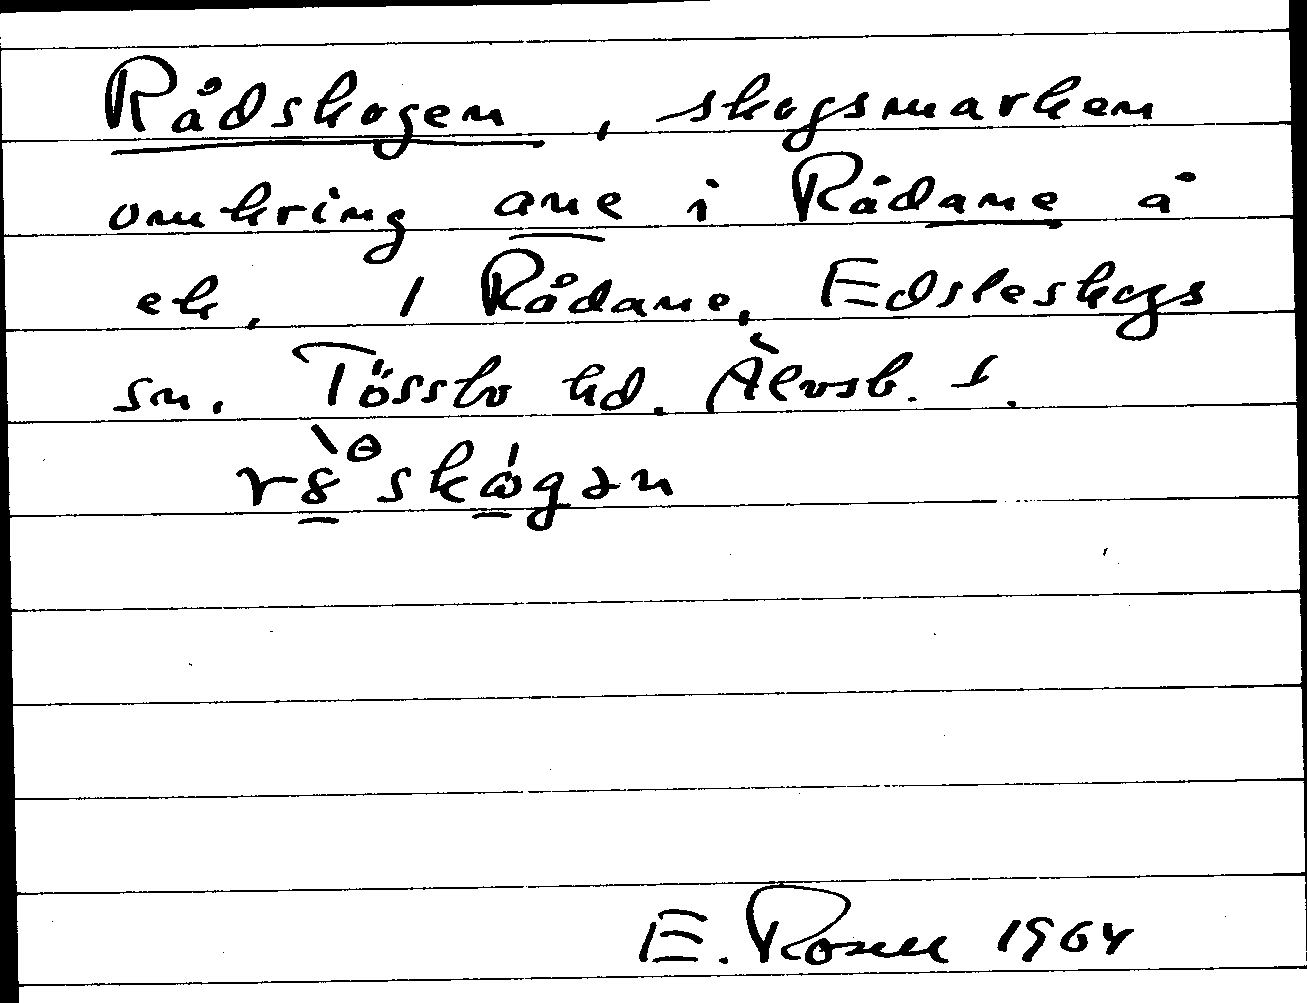 Rådskogen, skogsmarken
omkring ane i Rådane å
ek. 1 Rådane, Edsleskogs
sn. Tössbo hd. Älvsb. l.
E. Rosell 1964